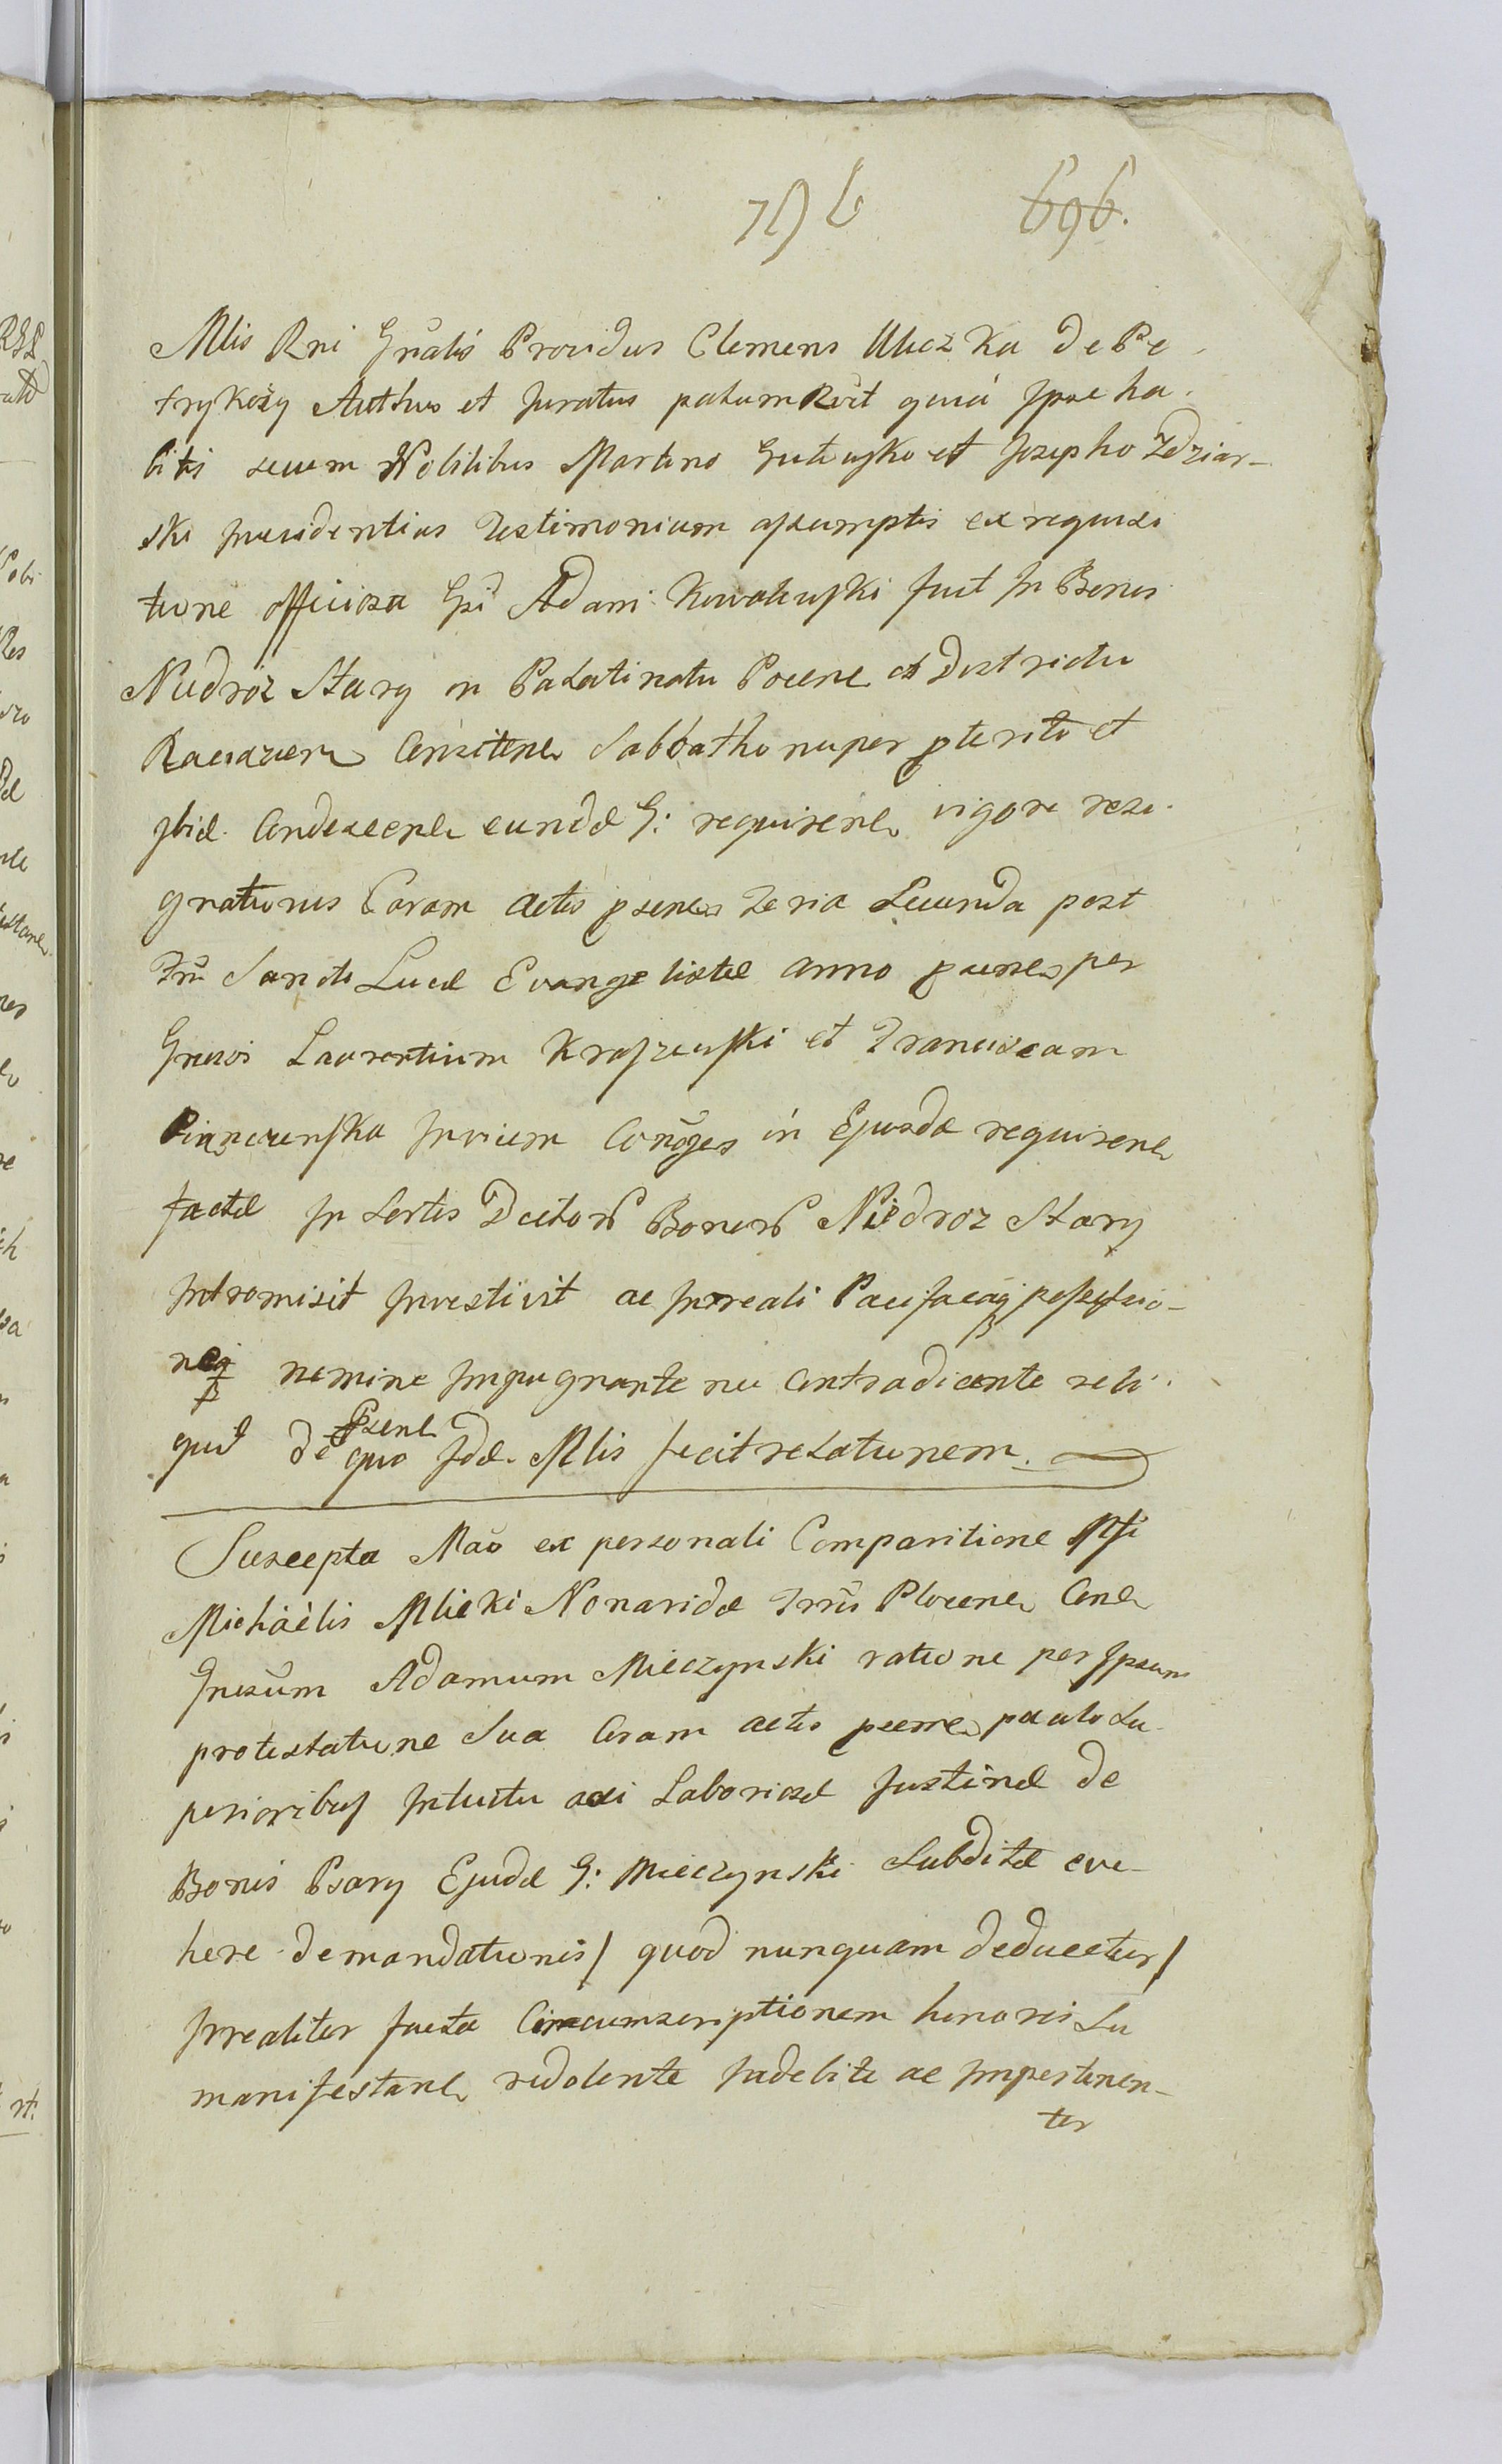 696.
Mlis Rni Gnalis Providus Clemens Uliczka de Pe
trykozy Autthus et Juratus palam Rvit quia Ipse ha
bitis secum Nobilibus Martino et Josepho Zdziar-
ski Testimonium assumptis ex requisi
tione officiosa Adami Kowalewski fuit In Bonis
Niedroz Stary in Palatinatu Plocen et Districtu
Raciazen Consisten Sabbatho nuper pterito et
Ibid. Condescen eunde G: requiren vigore resi
gnationis Coram actis psen Feria Secunda post
Sancti Lucæ Evangelistæ anno psen per
Gnosos Laurentium Kraszewski et Franciscam
Invicem Conges in Ejusdæ requiren
factæ In Sortis Dictor Bonor Niedroz Stary
Intromisit Investivit ac In reali possessio-
neq nemine Impugnante nec Contradicente reli
quit de psen quo Idæ Mlis fecit relationem.
Suscepta Mao ex personali Comparitione
Michaelis Mlicki Plocen Con
Gnosum Adamum Mieczynski ratione per Ipsum
protestatione Sua Coram actis psen paulo Su
perioribus Intuitu Laboriosæ Justinæ de
Bonis Psary Ejusdæ G: Mieczynski Subditæ eve-
here demandationis / quod nunquam deducetur /
Irrealiter facta Circumscriptionem honoris Su
manifestan redolente Indebite ac Impertinen-
ter